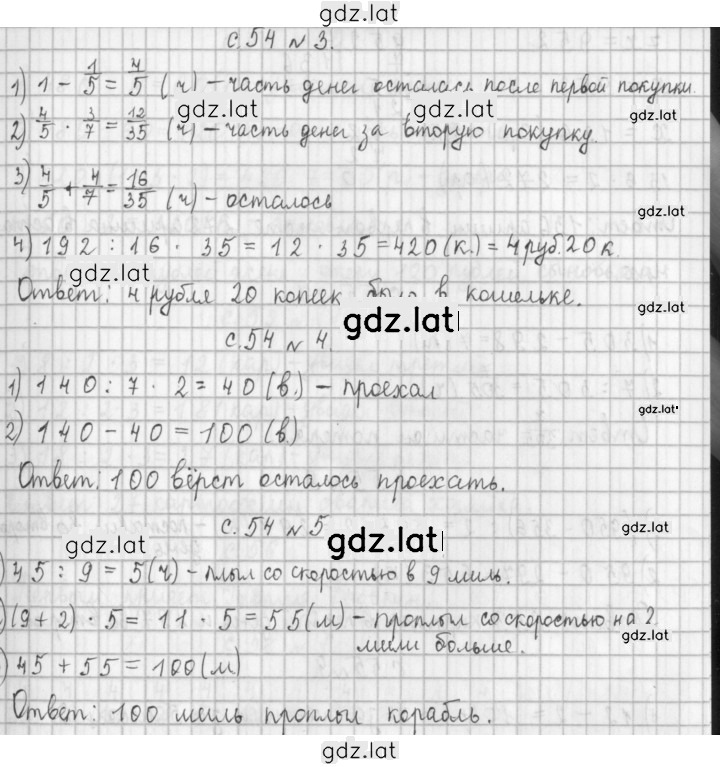 gdz.lat
с.54 № 3.
1) 1 - 1/5 = 4/5 (ч) – часть денег осталась после первой покупки.
gdz.lat gdz.lat
2) 4/5 · 3/7 = 12/35 (ч) – часть денег за вторую покупку.
gdz.lat
3) 4/5 + 4/7 = 16/35 (ч) – осталось
gdz.lat
4) 192 : 16 · 35 = 12 · 35 = 420 (к.) = 4 руб. 20 к.
gdz.lat
Ответ: 4 рубля 20 копеек было в кошельке.
gdz.lat gdz.lat
с.54 № 4
1) 140 : 7 · 2 = 40 (в.) – проехал
gdz.lat
2) 140 - 40 = 100 (в.)
Ответ: 100 вёрст осталось проехать.
с.54 № 5
gdz.lat gdz.lat gdz.lat
) 45 : 9 = 5 (ч) – плыл со скоростью в 9 миль.
) (9 + 2) · 5 = 11 · 5 = 55 (м) – проплыл со скоростью на 2
мили больше.
gdz.lat
) 45 + 55 = 100 (м)
Ответ: 100 миль проплыл корабль.
gdz.lat